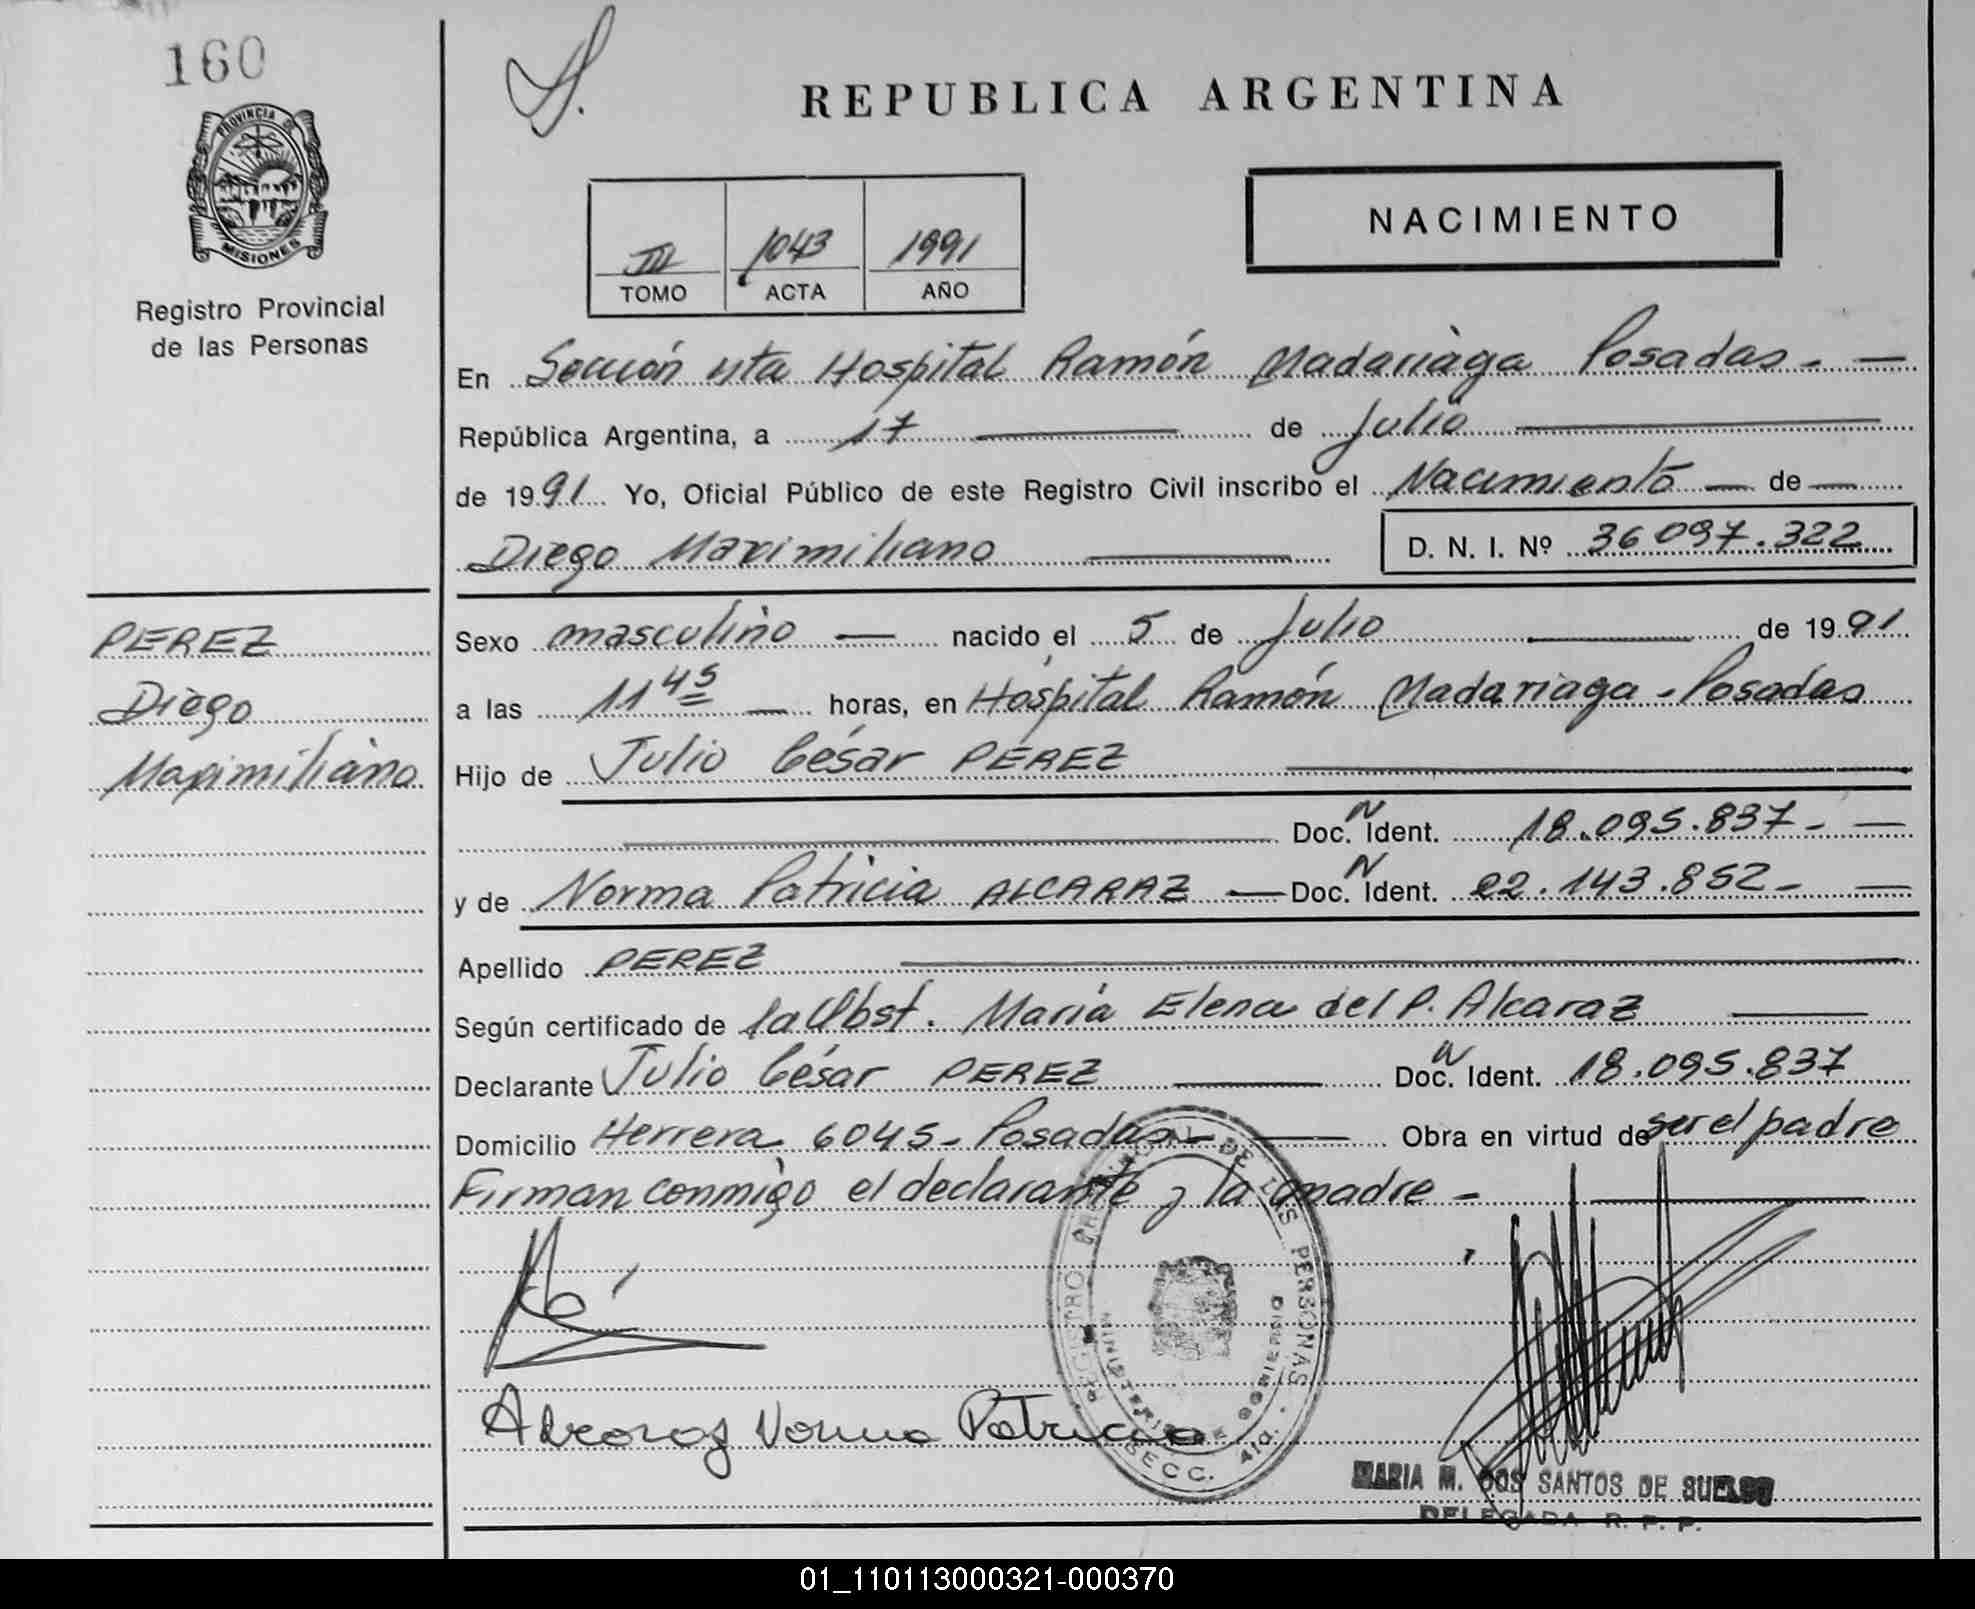 160
PROVINCIA DE
MISIONES
Registro Provincial
de las Personas
REPUBLICA ARGENTINA
III 1043 1991
TOMO ACTA AÑO
NACIMIENTO
En Sección 4ta Hospital Ramón Madariaga Posadas. —
República Argentina, a 17 — de Julio —
de 1991 Yo, Oficial Público de este Registro Civil inscribo el Nacimiento — de —
Diego Maximiliano — D. N. I. Nº 36097.322
PEREZ
Diego
Maximiliano
Sexo masculino — nacido el 5 de Julio — de 1991
a las 11 45 — horas, en Hospital Ramón Madariaga - Posadas
Hijo de Julio César PEREZ —
— Doc. N Ident. 18.095.837 - —
y de Norma Patricia ALCARAZ — Doc. N Ident. 22.143.852 - —
Apellido PEREZ —
Según certificado de la Obst. María Elena del P. Alcaraz —
Declarante Julio César PEREZ — Doc. N Ident. 18.095.837
Domicilio Herrera 6045 - Posadas — Obra en virtud de ser el padre
Firman conmigo el declarante y la madre - —
REGISTRO PROVINCIAL DE LAS PERSONAS
MINISTERIO DE GOBIERNO
SECC. 4ta.
Alcaraz Norma Patricia
MARIA M. DOS SANTOS DE
DELEGADA R. P. P.
01_110113000321-000370